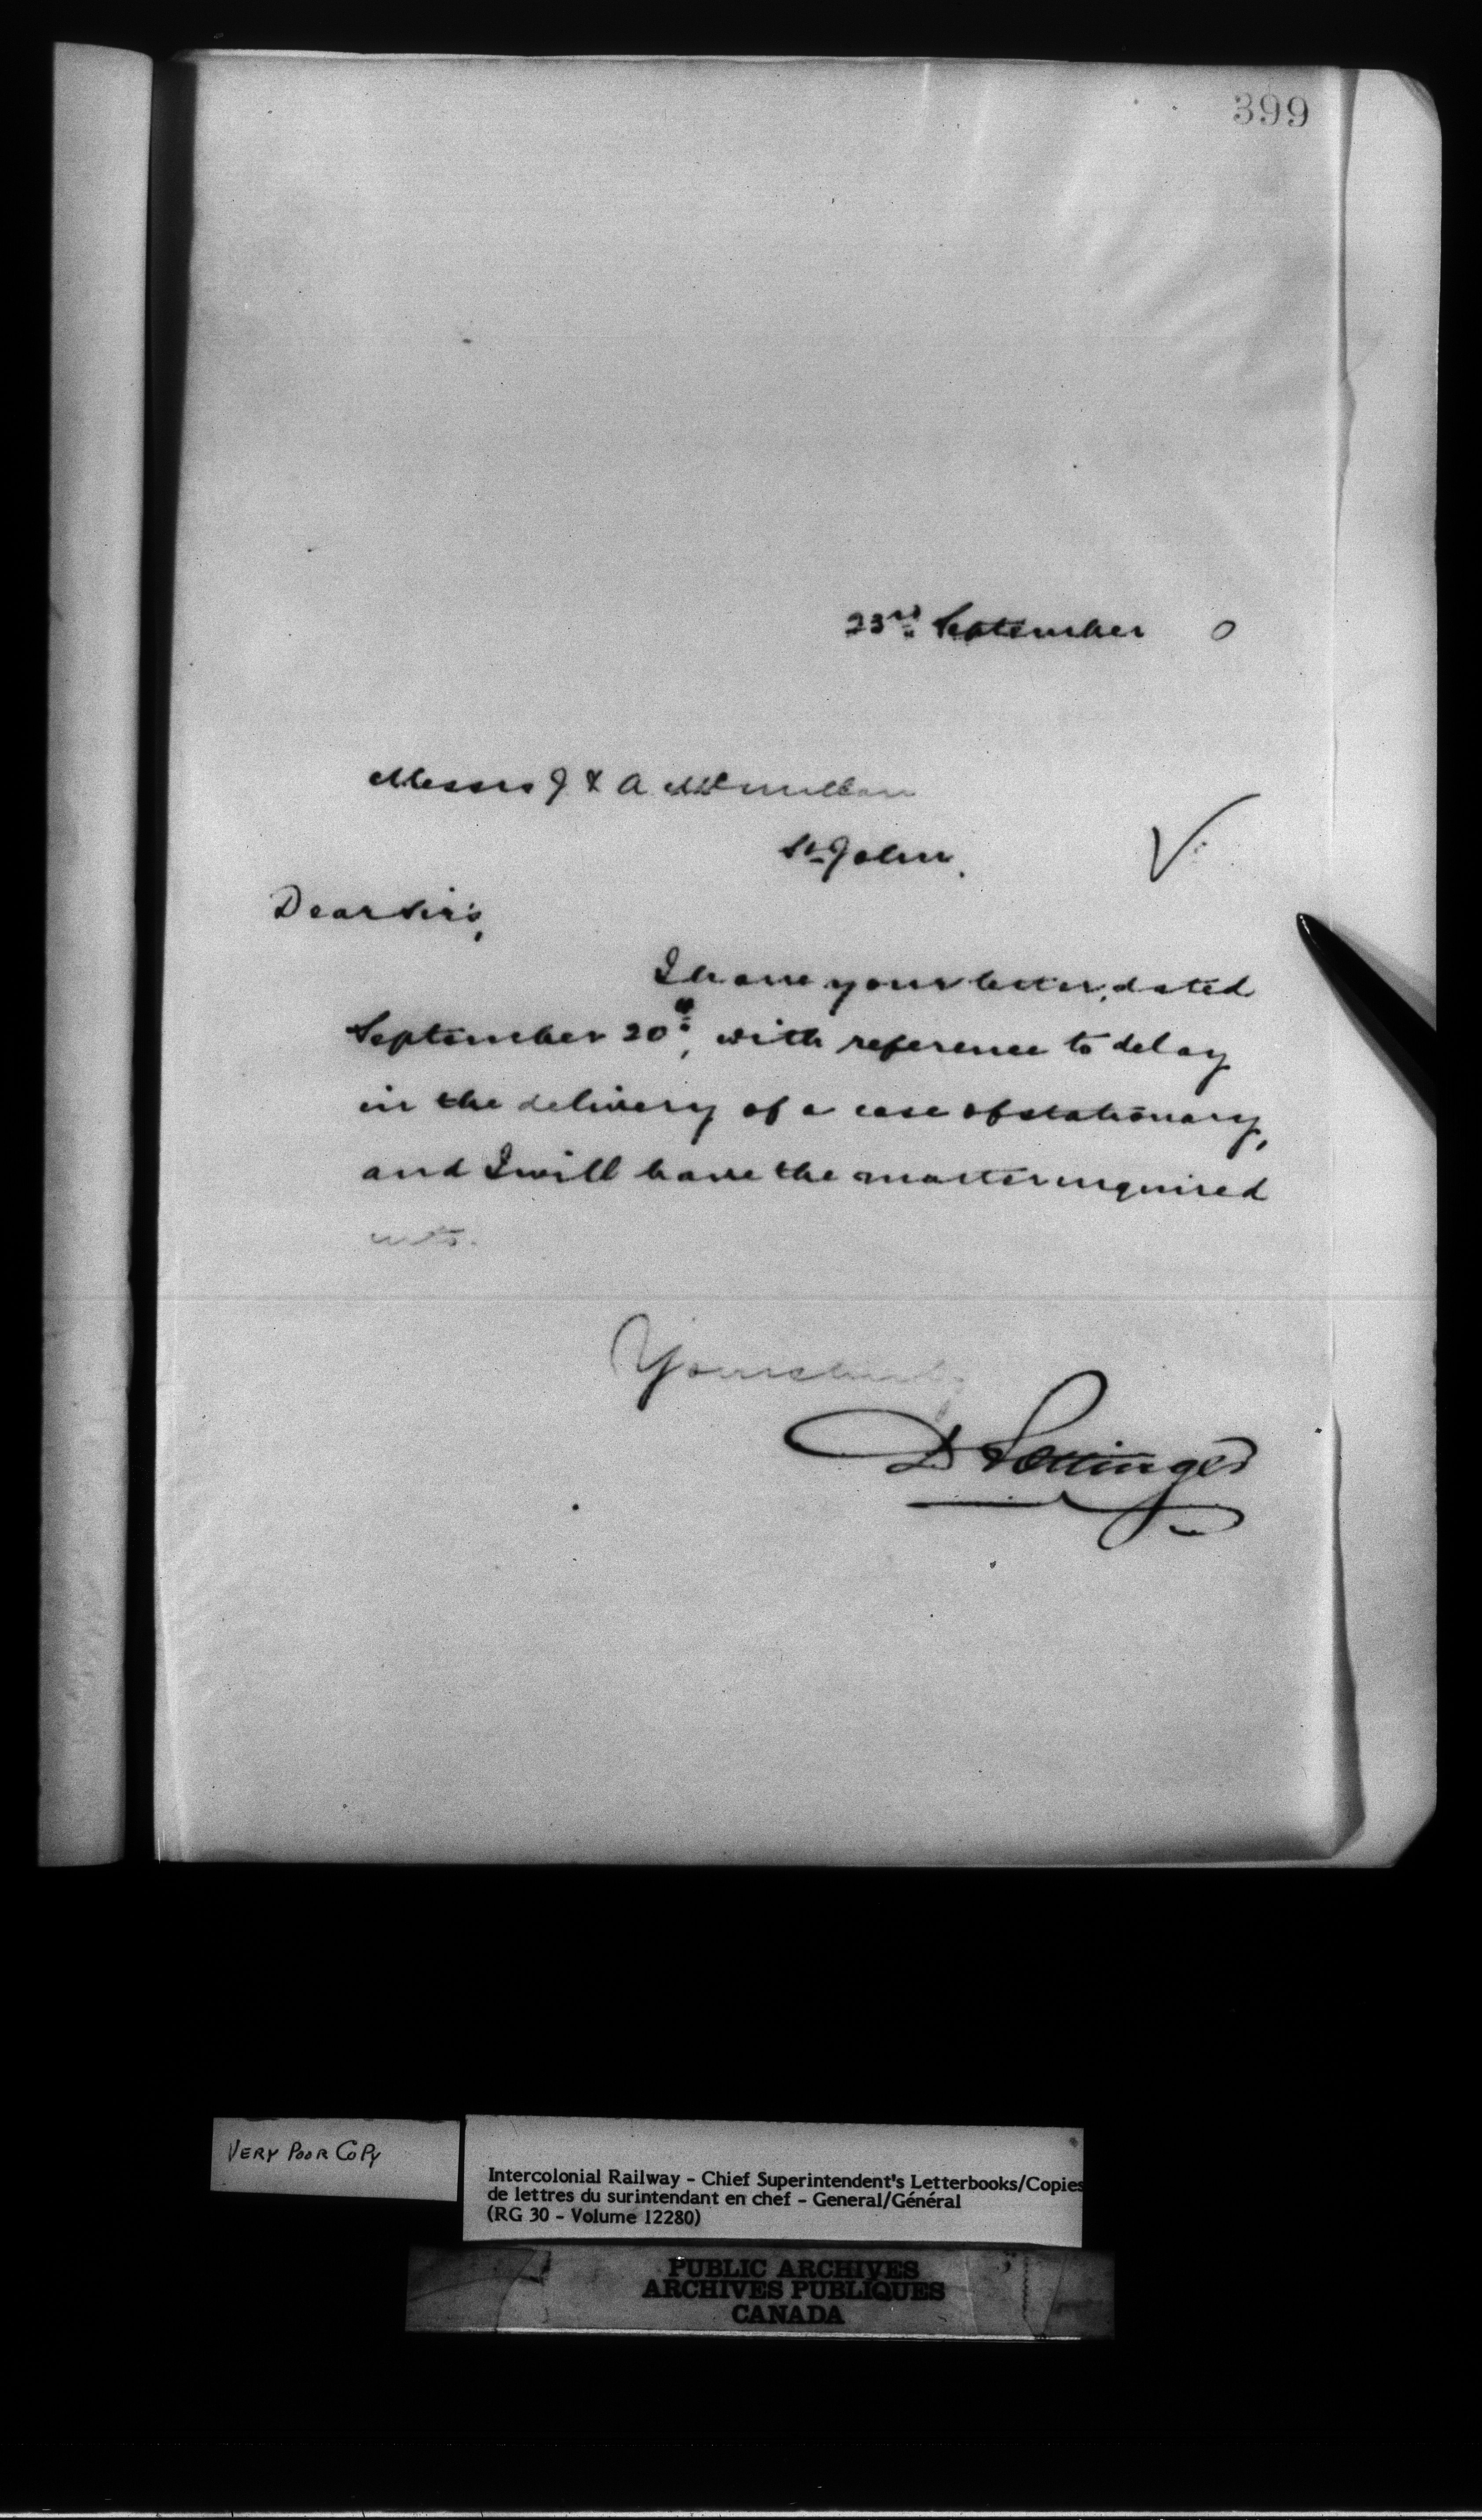 399
23rd September 0
Messrs J & A McMillan
St John.
Dear Sir's,
I have your letter, dated
September 20th, with reference to delay
in the delivery of a case of stationary,
and I will have the matter inquired
into.
Yours truly
D Pottinger
VERY POOR COPY
Intercolonial Railway - Chief Superintendent's Letterbooks/Copies
de lettres du surintendant en chef - General/Général
(RG 30 - Volume 12280)
PUBLIC ARCHIVES
ARCHIVES PUBLIQUES
CANADA